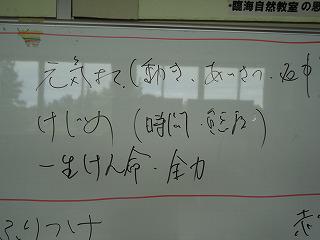 ・臨海自然教室の思
元気よく(動き、あいさつ・返事
けじめ (時間・
一生けん命・全力
ふりつけ